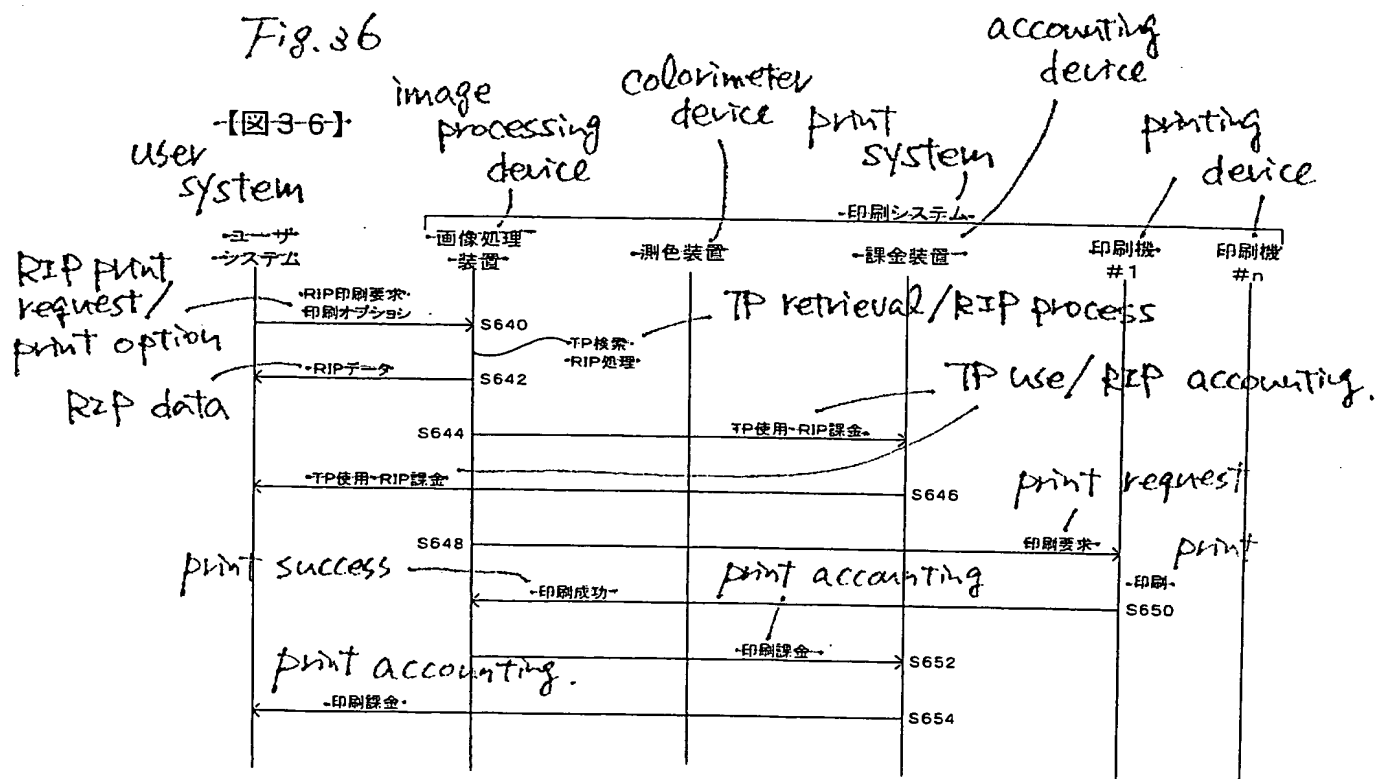 Fig. 36
【図3-6】
user
system
image
processing
device
colorimeter
device
print
system
accounting
device
printing
device
印刷システム
ユーザ
システム
画像処理
装置
測色装置
課金装置
印刷機
#1
印刷機
#n
RIP print
request/
print option
RIP印刷要求
印刷オプション
S640
TP検索
RIP処理
TP retrieval/RIP process
RIPデータ
S642
RIP data
TP use/RIP accounting.
S644
TP使用・RIP課金
TP使用・RIP課金
S646
print request
S648
印刷要求
print
印刷
print success
印刷成功
S650
print accounting
印刷課金
S652
print accounting.
印刷課金
S654